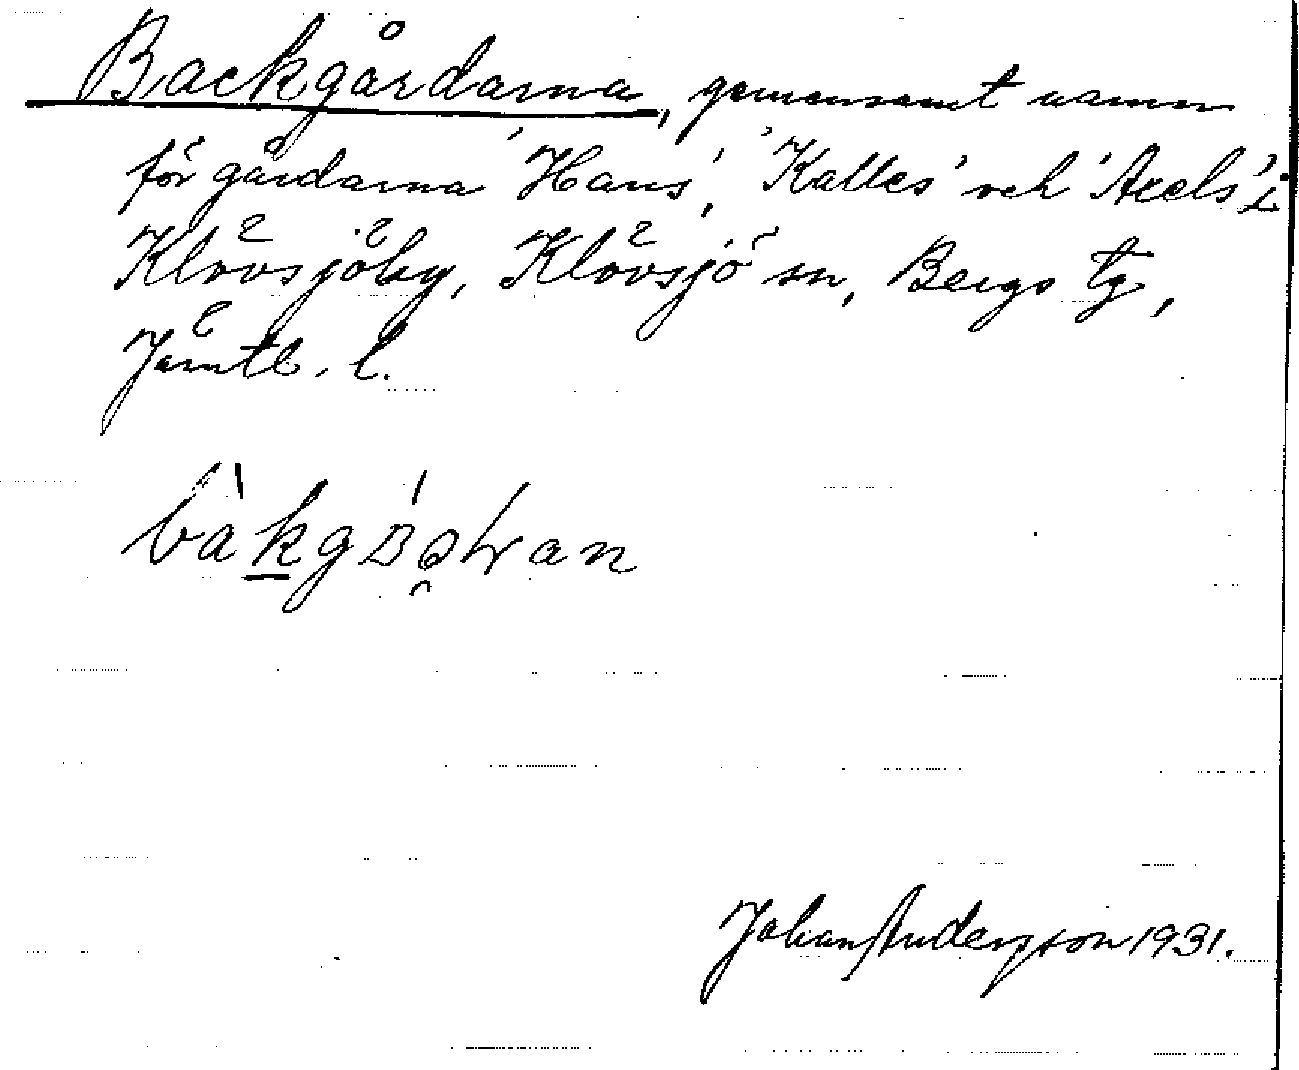 Backgårdarna, gemensamt namn
för gårdarna 'Hans', 'Kalles' och 'Axels' i
Klövsjöby, Klövsjö sn, Bergs tg,
Jämtl. l.
Johan Andersson 1931.